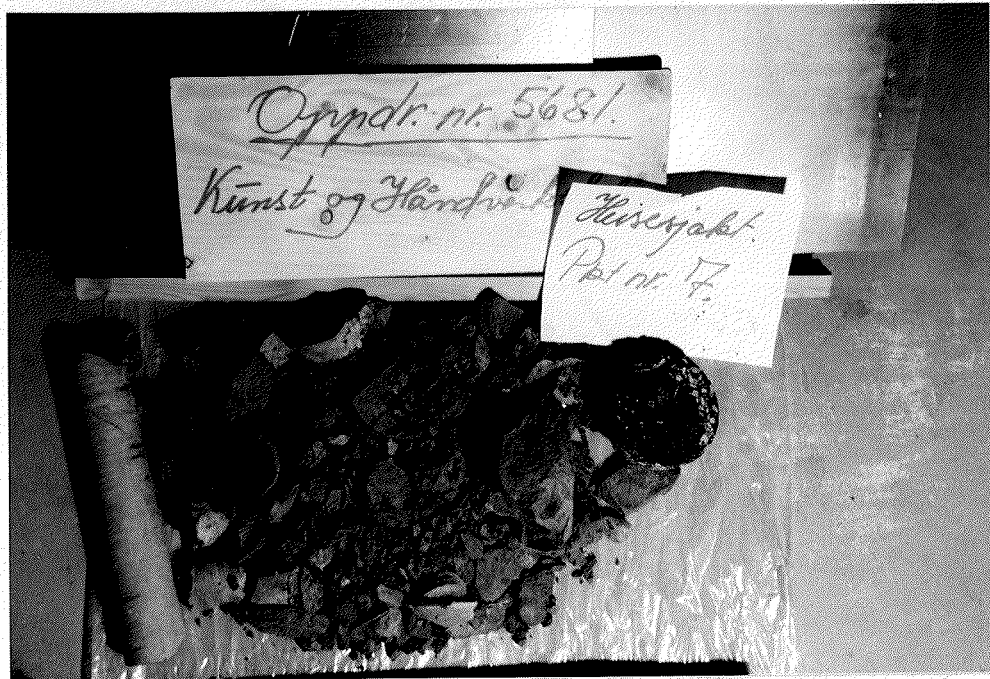 Oppdr. nr. 5681.
Kunst og Håndverk
Heisesjakt.
Pkt nr. 7.